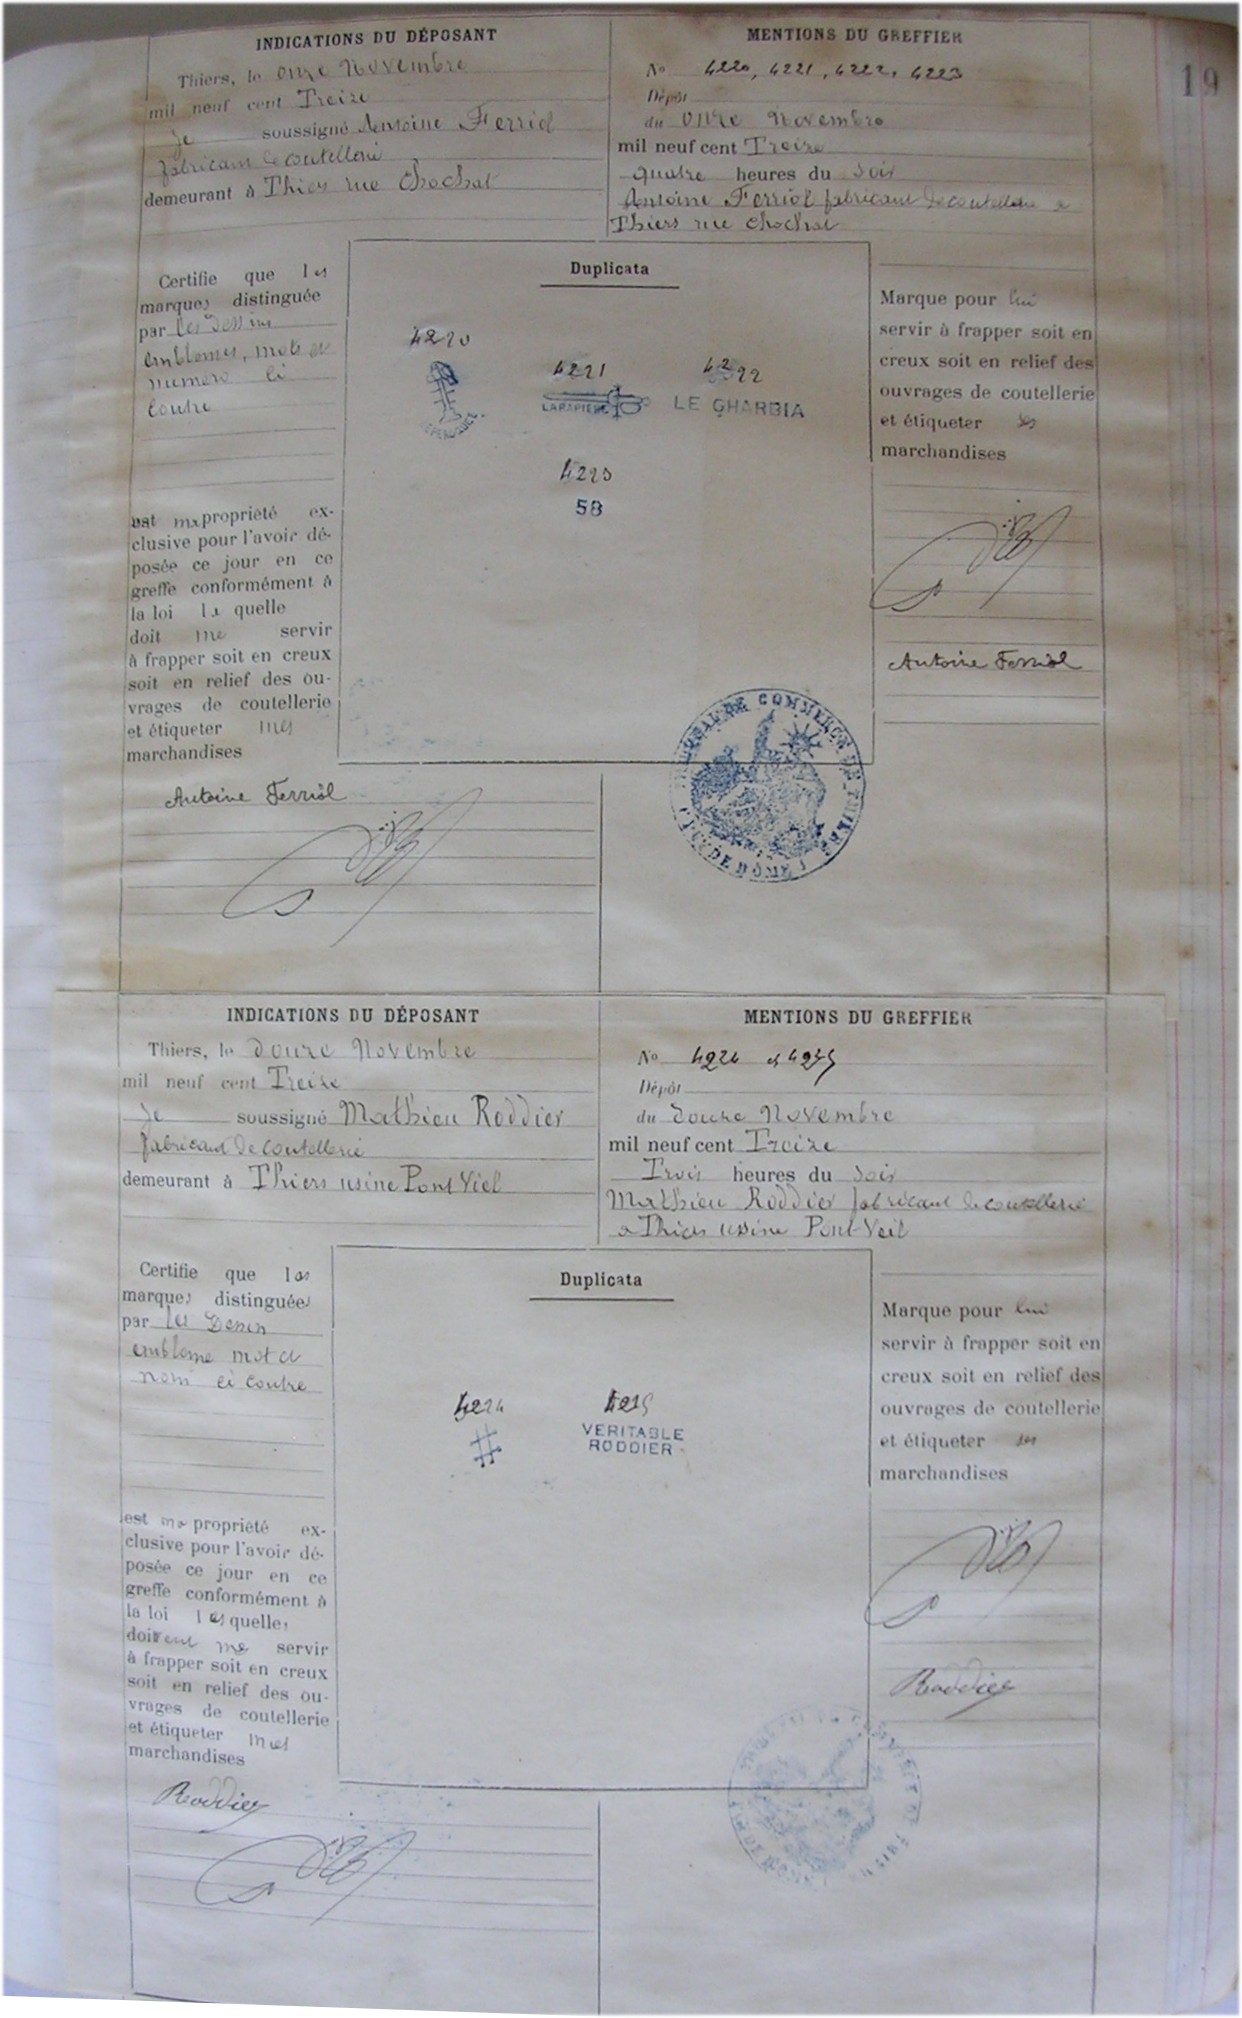 19
INDICATIONS DU DÉPOSANT
Thiers, le onze Novembre
mil neuf cent Treize
je soussigné Antoine Ferriol
fabricant de coutellerie
demeurant à Thiers rue Chochat
MENTIONS DU GREFFIER
No 4220, 4221, 4222, 4223
Dépôt
du onze Novembre
mil neuf cent Treize
quatre heures du soir
Antoine Ferriol fabricant de coutellerie a
Thiers rue Chochat
Certifie que les
marques distinguée
par les dessins
emblemes, mots et
numero ci
contre
est ma propriété ex-
clusive pour l'avoir dé-
posée ce jour en ce
greffe conformément à
la loi la quelle
doit me servir
à frapper soit en creux
soit en relief des ou-
vrages de coutellerie
et étiqueter mes
marchandises
Antoine Ferriol
Duplicata
4220
4221
4222
LARAPIERE
LE GHARBIA
4223
58
TRIBUNAL DE COMMERCE DE THIERS
PUY DE DÔME
Marque pour lui
servir à frapper soit en
creux soit en relief des
ouvrages de coutellerie
et étiqueter ses
marchandises
Antoine Ferriol
INDICATIONS DU DÉPOSANT
Thiers, le douze Novembre
mil neuf cent Treize
je soussigné Mathieu Roddier
fabricant de coutellerie
demeurant à Thiers usine Pont Viel
MENTIONS DU GREFFIER
No 4224 et 4225
Dépôt
du douze Novembre
mil neuf cent Treize
Trois heures du soir
Mathieu Roddier fabricant de coutellerie
a Thiers usine Pont-Veil
Certifie que les
marques distinguées
par les Dessin
embleme mot et
nom ci contre
est ma propriété ex-
clusive pour l'avoir dé-
posée ce jour en ce
greffe conformément à
la loi les quelles
doivent me servir
à frapper soit en creux
soit en relief des ou-
vrages de coutellerie
et étiqueter mes
marchandises
Roddier
Duplicata
4224
4225
VERITABLE
RODDIER
Marque pour lui
servir à frapper soit en
creux soit en relief des
ouvrages de coutellerie
et étiqueter ses
marchandises
Roddier